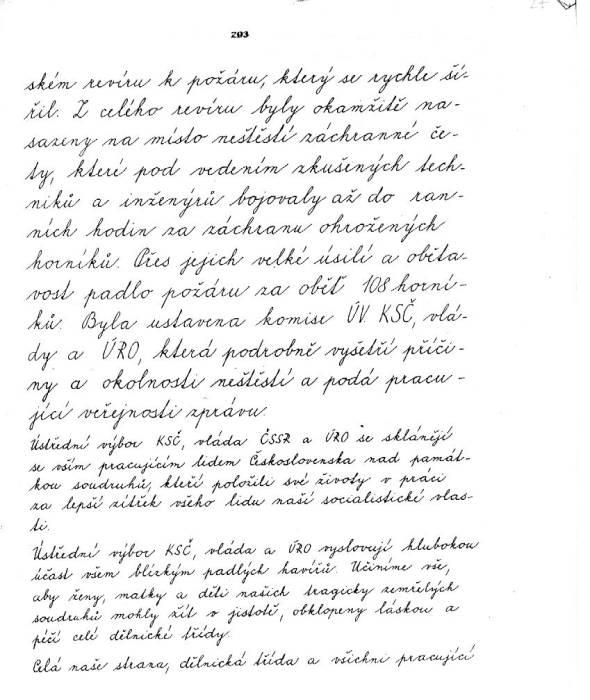 203
ském revíru k požáru, který se rychle ší-
řil. Z celého revíru byly okamžitě na-
sazeny na místo neštěstí záchranné če-
ty, které pod vedením zkušených tech-
niků a inženýrů bojovaly až do ran-
ních hodin za záchranu ohrožených
horníků. Přes jejich velké úsilí a oběta-
vost padlo požáru za oběť 108 horní-
ků. Byla ustavena komise ÚV. KSČ, vlá-
dy a ÚRO, která podrobně vyšetří příči-
ny a okolnosti neštěstí a podá pracu-
jící veřejnosti zprávu.
Ústřední výbor KSČ, vláda ČSSR a ÚRO se sklánějí
se vším pracujícím lidem Československa nad památ-
kou soudruhů, kteří položili své životy v práci
za lepší zítřek všeho lidu naší socialistické vlas-
ti.
Ústřední výbor KSČ, vláda a ÚRO vyslovují hlubokou
účast všem blízkým padlých havířů. Učiníme vše,
aby ženy, matky a děti našich tragicky zemřelých
soudruhů mohly žít v jistotě, obklopeny láskou a
péčí celé dělnické třídy.
Celá naše strana, dělnická třída a všichni pracující